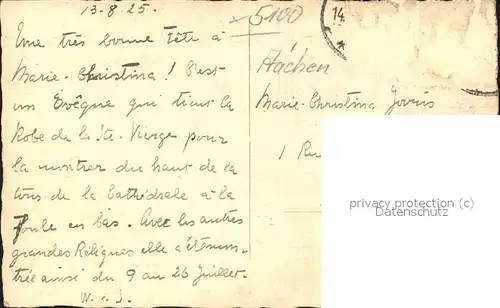 13-8-25.
Une très bonne fête à
Marie-Christina! C'est
un Evêque qui tient la
Robe de la Ste-Vierge pour
la montrer du haut de la
tour de la Cathédrale à la
foule en bas. Avec les autres
grandes Reliques elle a été mon-
trée ainsi du 9 au 26 Juillet.
5100
14
Aachen
Marie-Christina
1 Ru
privacy protection (c)
Datenschutz